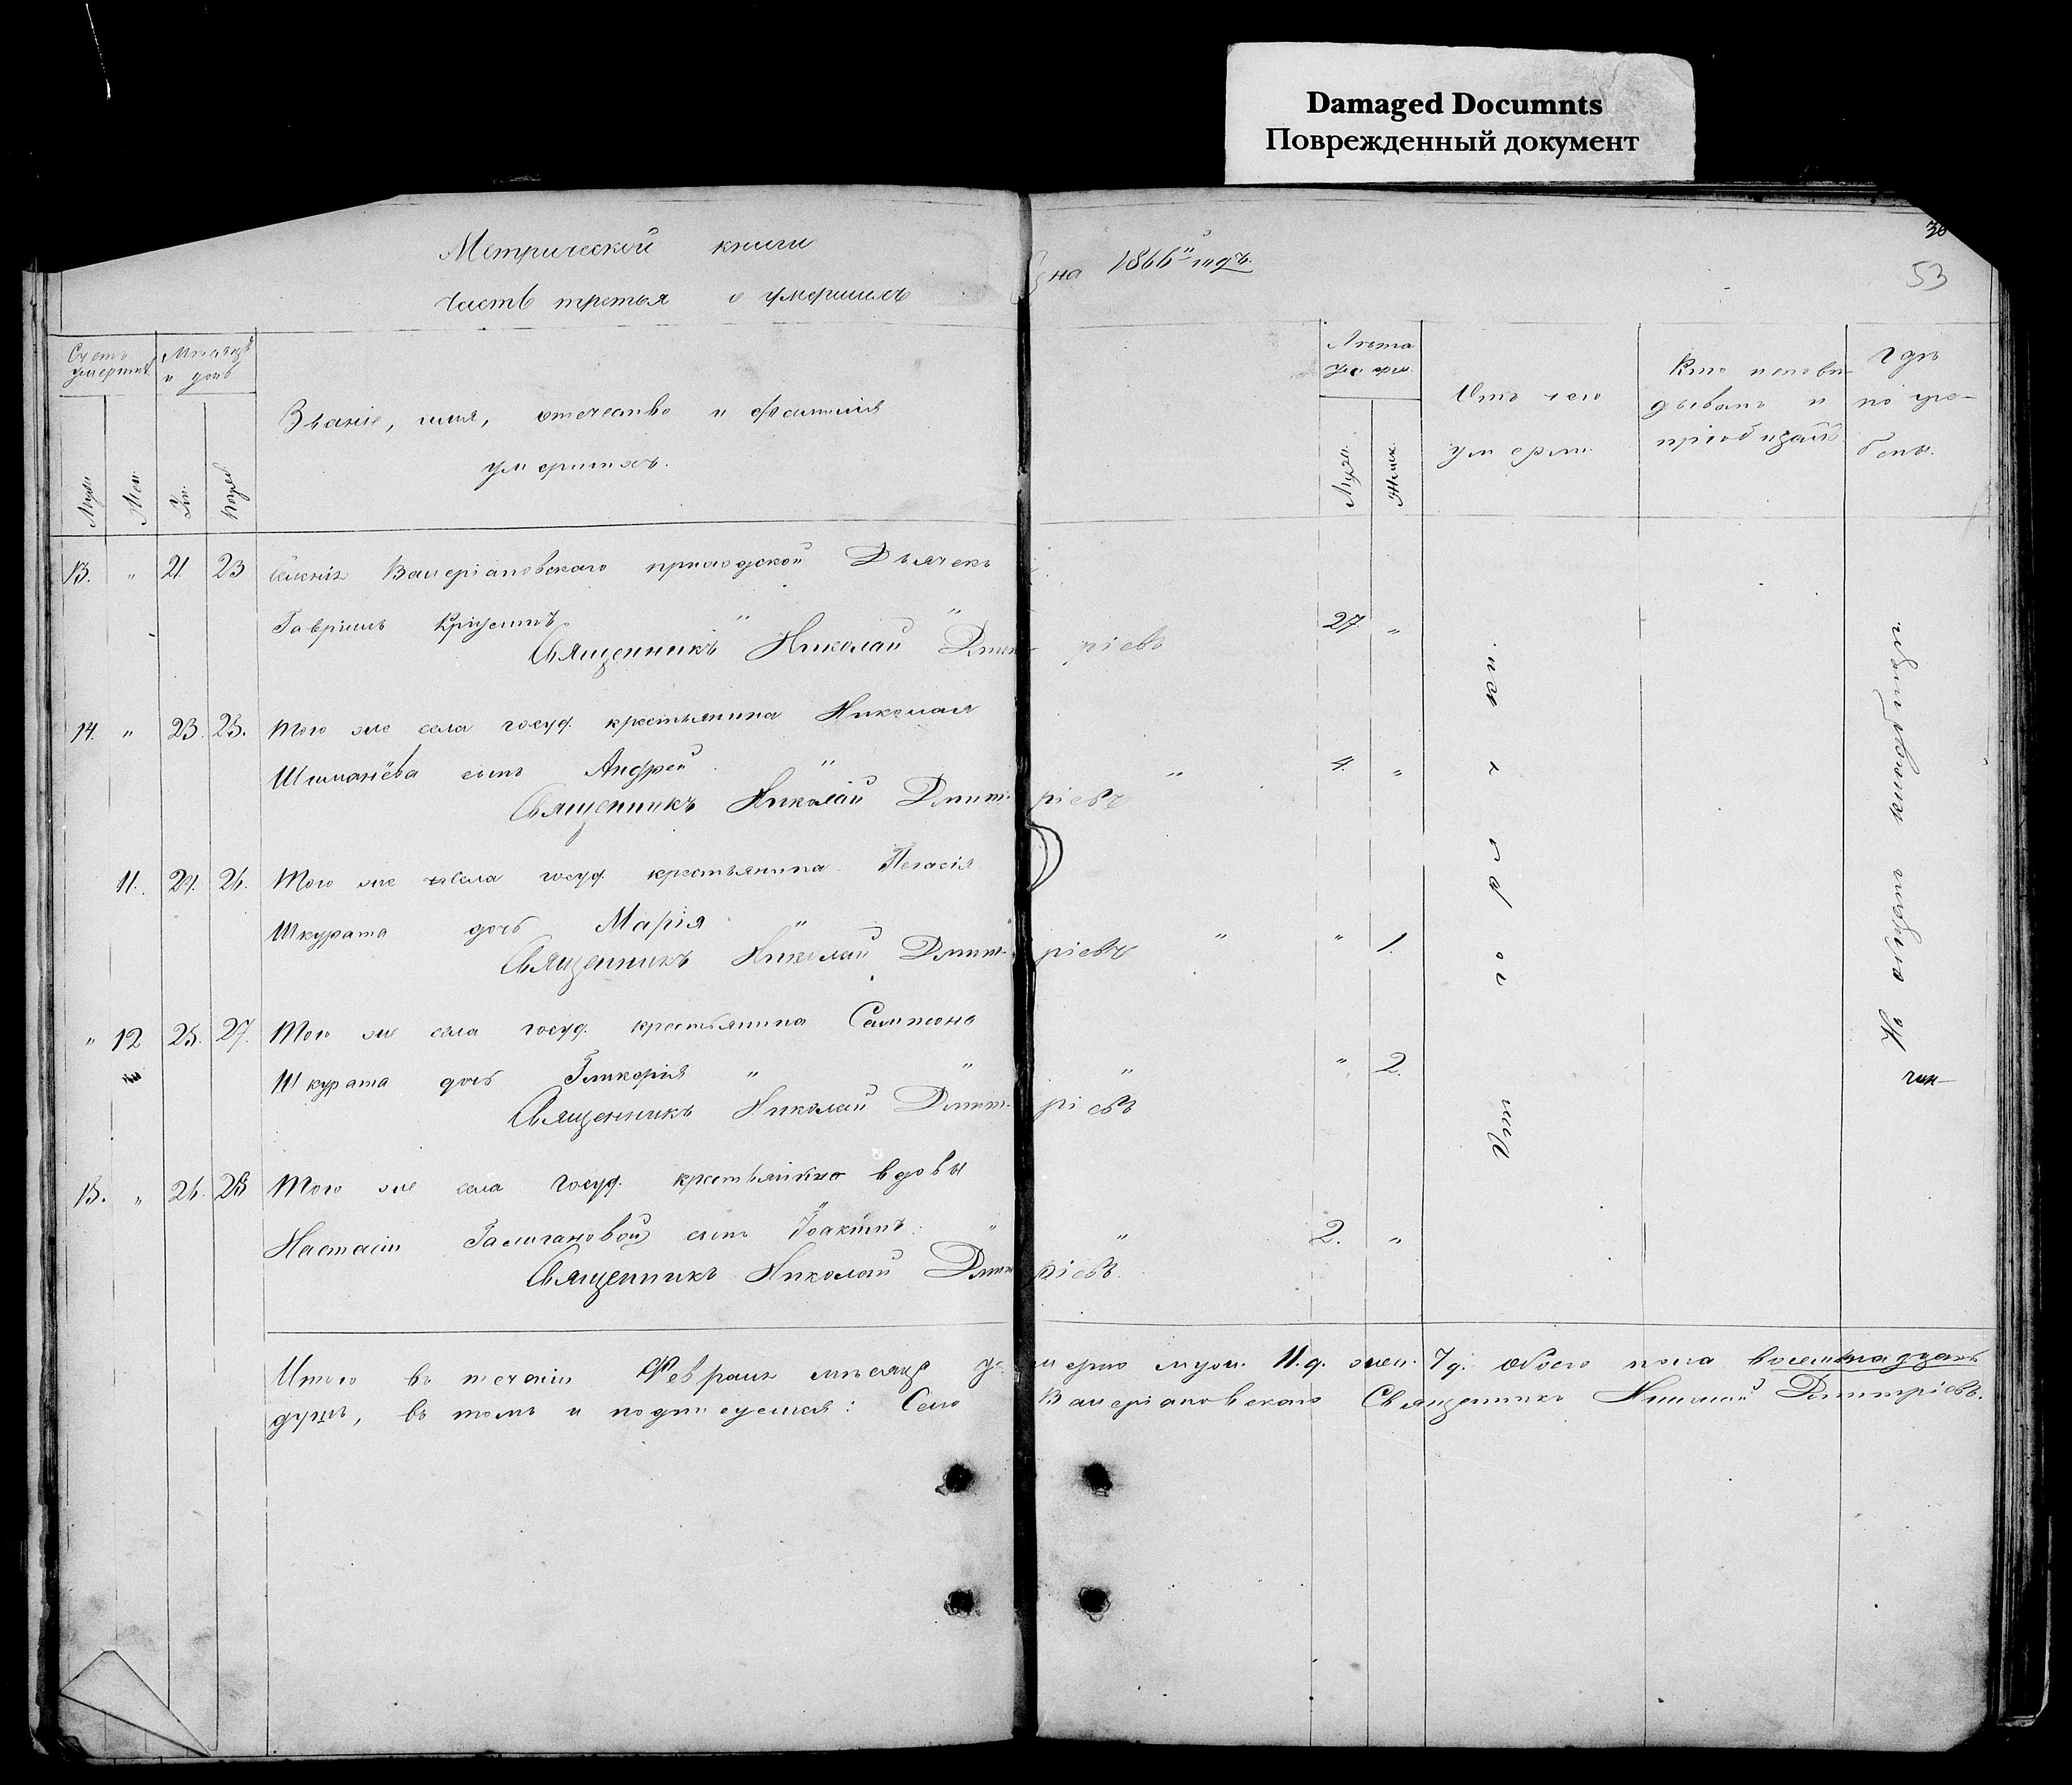 Damaged Documnts
Поврежденный документ
30
53
Метрической книги
на 1866й годъ.
Часть третья о умершихъ
Счетъ умершихъ
Мѣсяцъ и день
Званіе, имя, отечество и фамилія
умершихъ.
Лѣта умерш.
Отъ чего
умерли.
Кто исповѣ-
дывалъ и
пріобщалъ
Гдѣ
погре-
бены.
Муж. Жен. Ум. Погреб
Муж. Женск.
13. " 21. 23 Валеріановскаго приходской Дьячекъ
Гавріилъ " " 27 "
Священникъ Николай Дмитріевъ
14. " 23. 25. Того же села госуд. крестьянина Николая
сынъ Андрей " " 4. "
Священникъ Николай Дмитріевъ
11. 24. 26. Того же села госуд. крестьянина
Шкурата дочь Марія " " " 1.
Священникъ Николай Дмитріевъ
" 12 25. 27. Того же села госуд. крестьянина Сампсона
Шкурата дочь Гликерія " " " " 2.
Священникъ Николай Дмитріевъ
15. " 26. 28 Того же села госуд. вдовы
Настасіи сынъ Іоакимъ. " " 2. "
Священникъ Николай Дмитріевъ.
Отъ
На общемъ кладбищѣ.
Итого въ теченіи Февраля мѣсяца умерло муж. 11. д. жен. 7 д. обоего пола восемнадцать
душъ, въ томъ и подписуемся: Села Валеріановскаго Священникъ Николай Дмитріевъ.